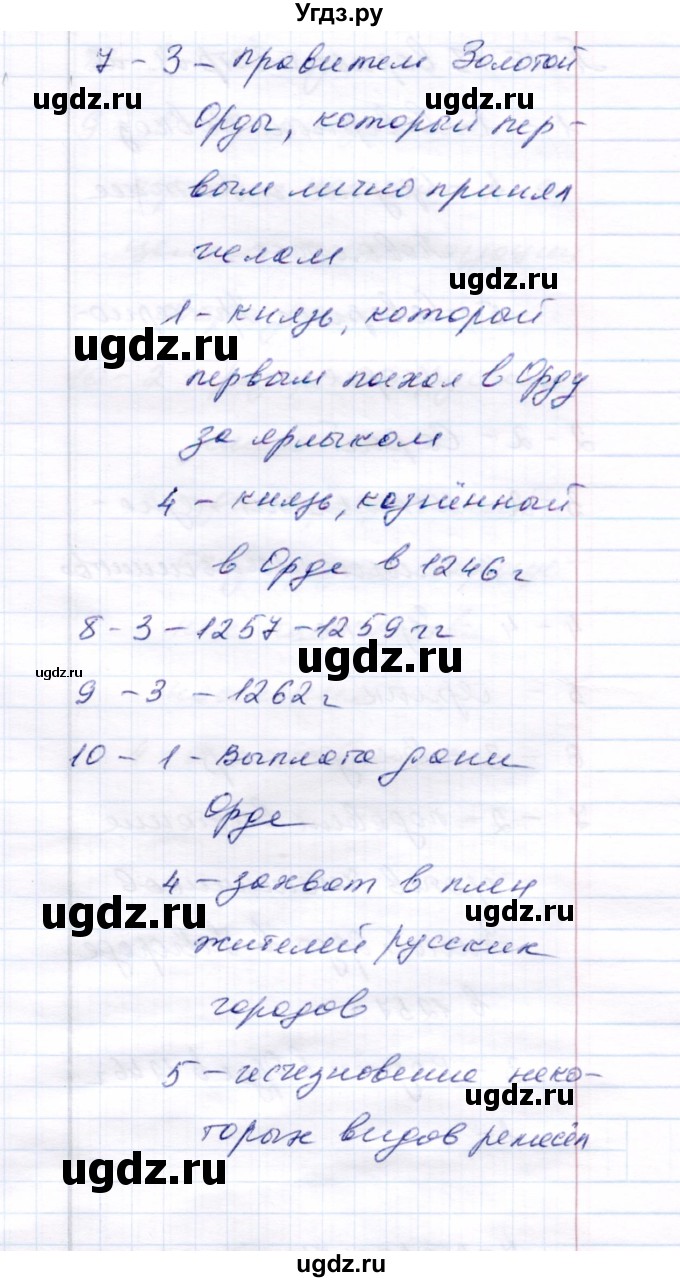 Угдз.ру
7 - 3 - правители Золотой
ugdz.ru ugdz.ru
Орды, который пер-
вым лично принял
ислам
ugdz.ru
1 - князь, который
ugdz.ru
первым поехал в Орду
за ярлыком
4 - князь, казнённый
в Орде в 1246 г
8 - 3 - 1257 - 1259 гг
ugdz.ru
ugdz.ru
9 - 3 - 1262 г
10 - 1 - Выплата дани
Орде
4 - захват в плен
ugdz.ru ugdz.ru
жителей русских
городов
5 - исчезновение неко-
ugdz.ru
торых видов ремёсел
ugdz.ru
ugdz.ru